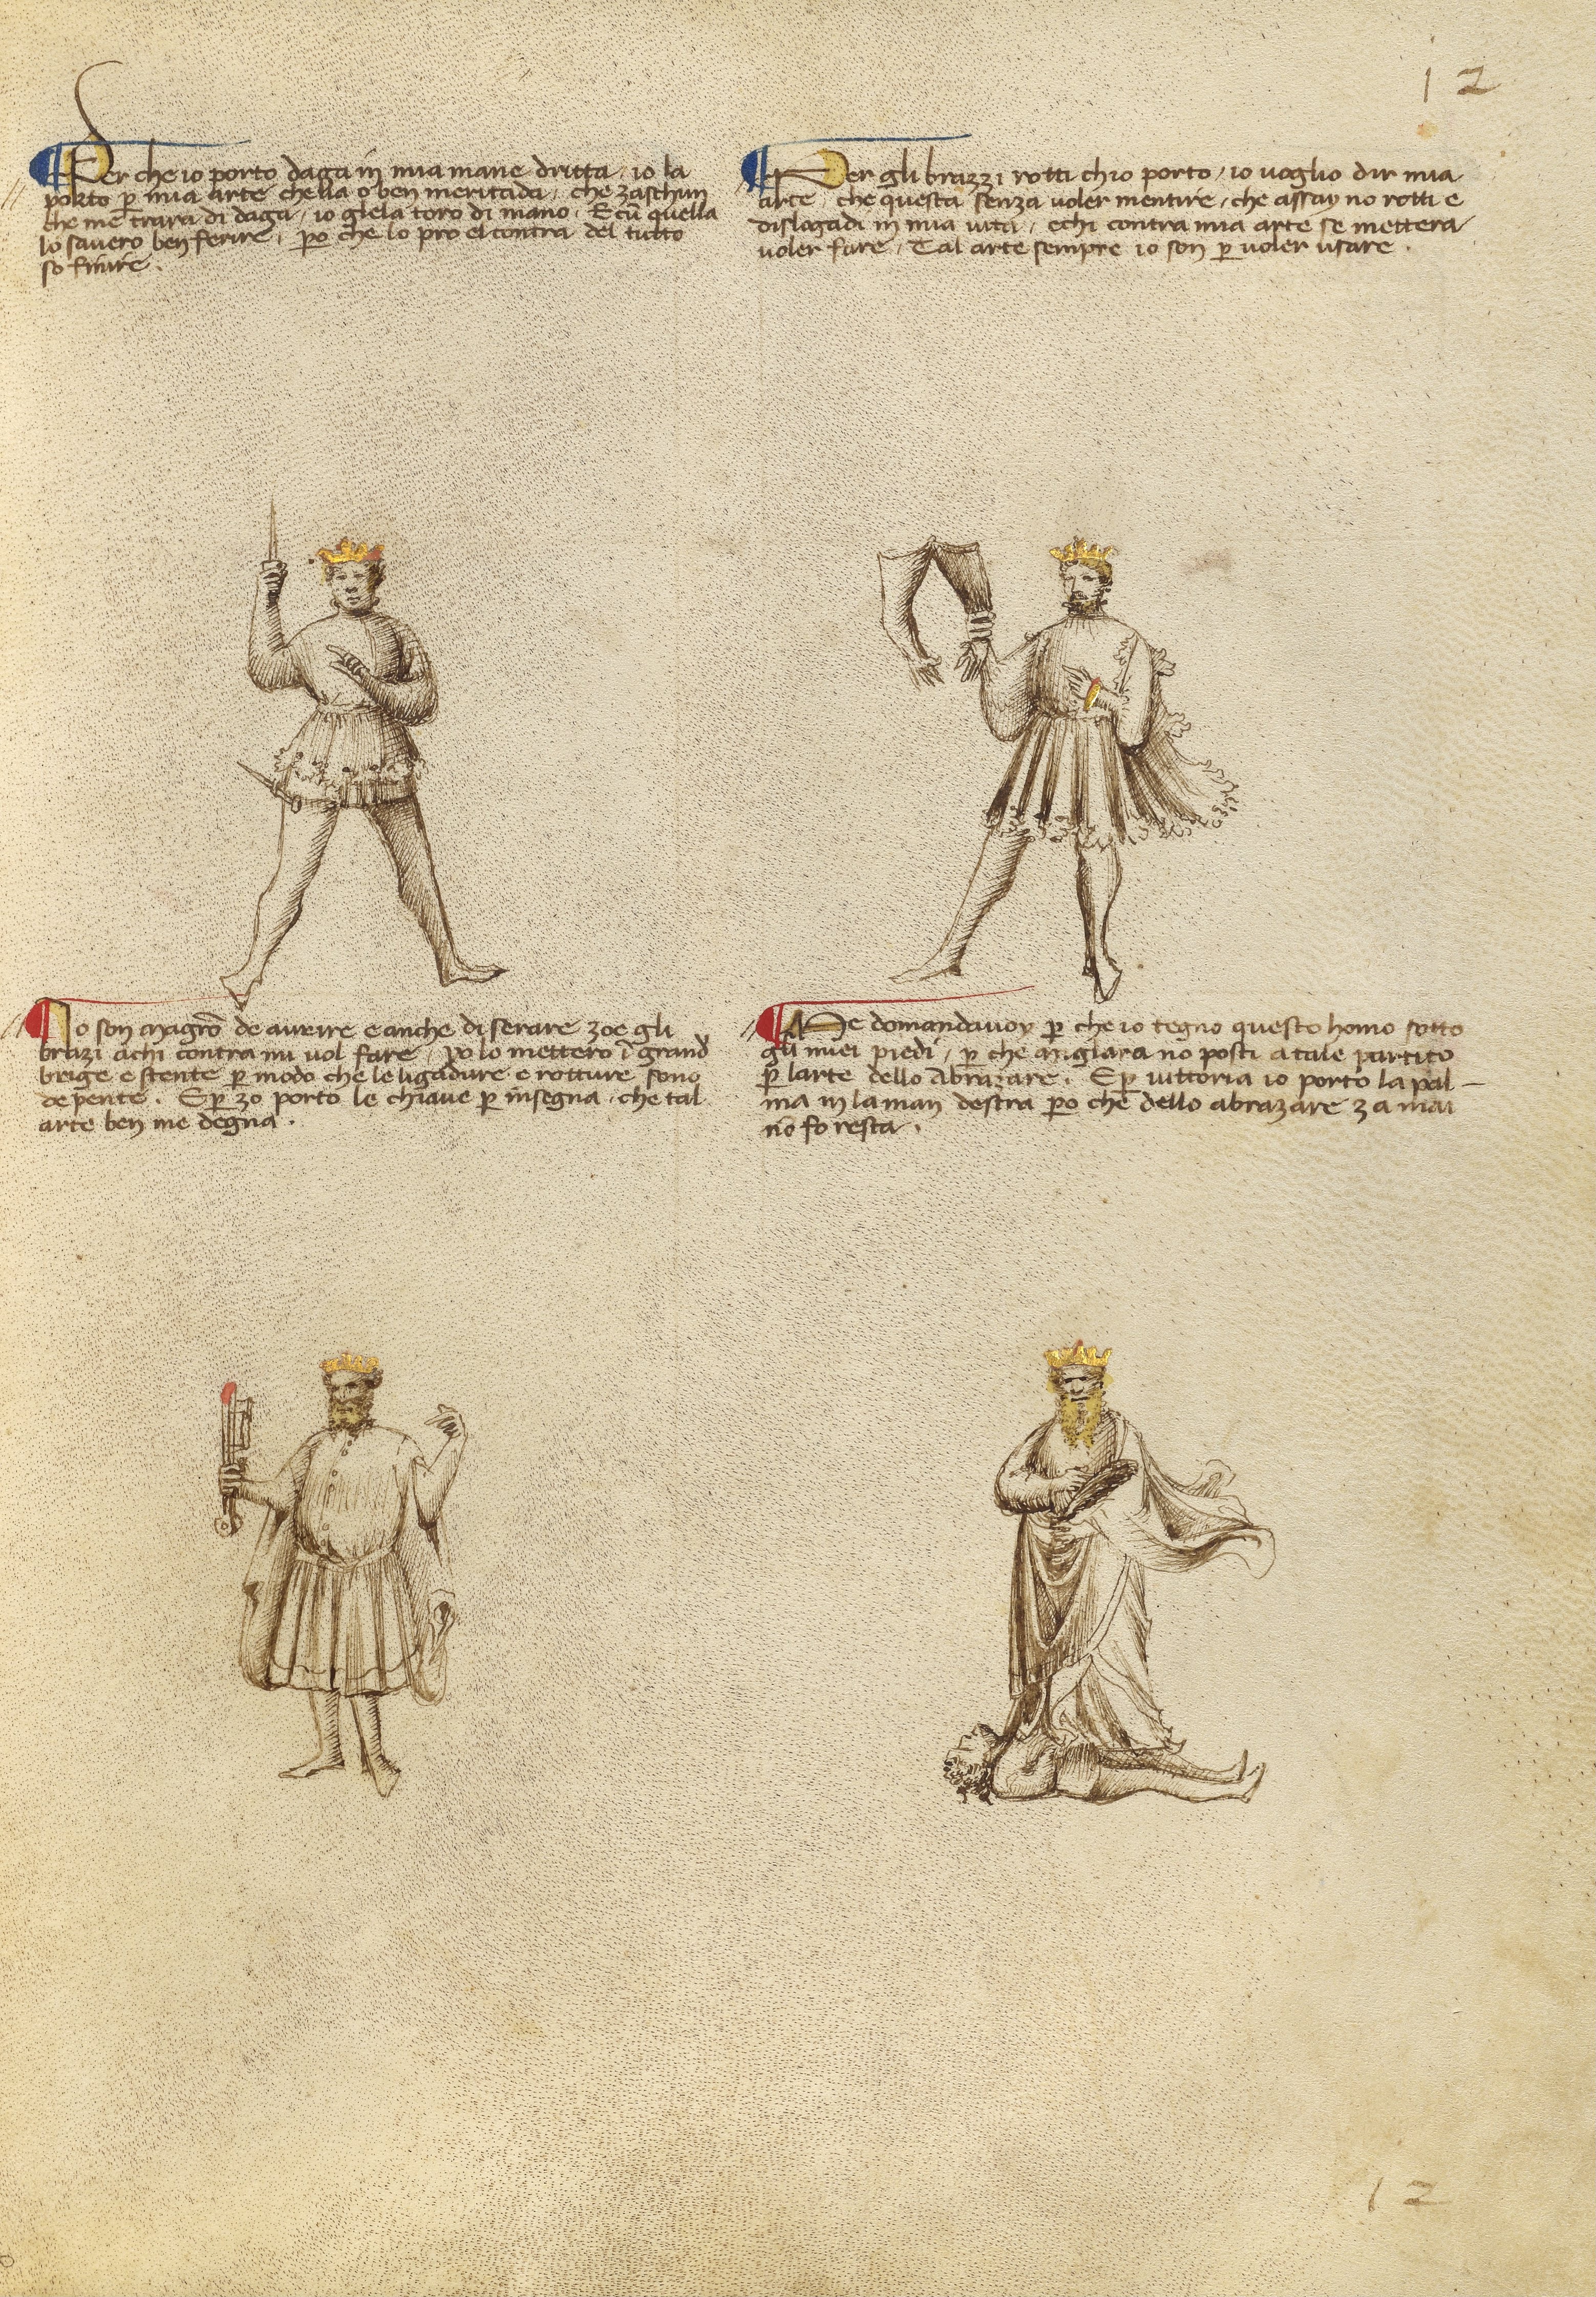 12
Per che io porto daga in mia mane dritta / io la
porto p mia arte chella o ben meritada / che zaschun
che me trara di daga / io glela toro di mano . E cū quella
lo savero ben ferire / po che lo pro el contra del tutto
so finire .
Per gli brazzi rotti chio porto / io voglio dir mia
arte / che questa senza voler mentire / che assay no rotti e
dislogadi in mia vita / e chi contra mia arte se mettera
voler fare / Tal arte sempre io son p voler usare .
Io son magrō de avrire e anche di serare zoe gli
brazi a chi contra mi vol fare / Yo lo mettero ī grand
brige e stente p modo che le ligadure e rotture sono
depente . E p zo porto le chiave p insegna / che tal
arte ben me degna .
Me domandavoy p che io tegno questo homo sotto
gli miei piedi / p che miglara no posti a tale partito
p larte dello Abrazare . E p vittoria io porto la pal-
ma in la man destra po che dello abrazare za mai
nō fo resta .
12